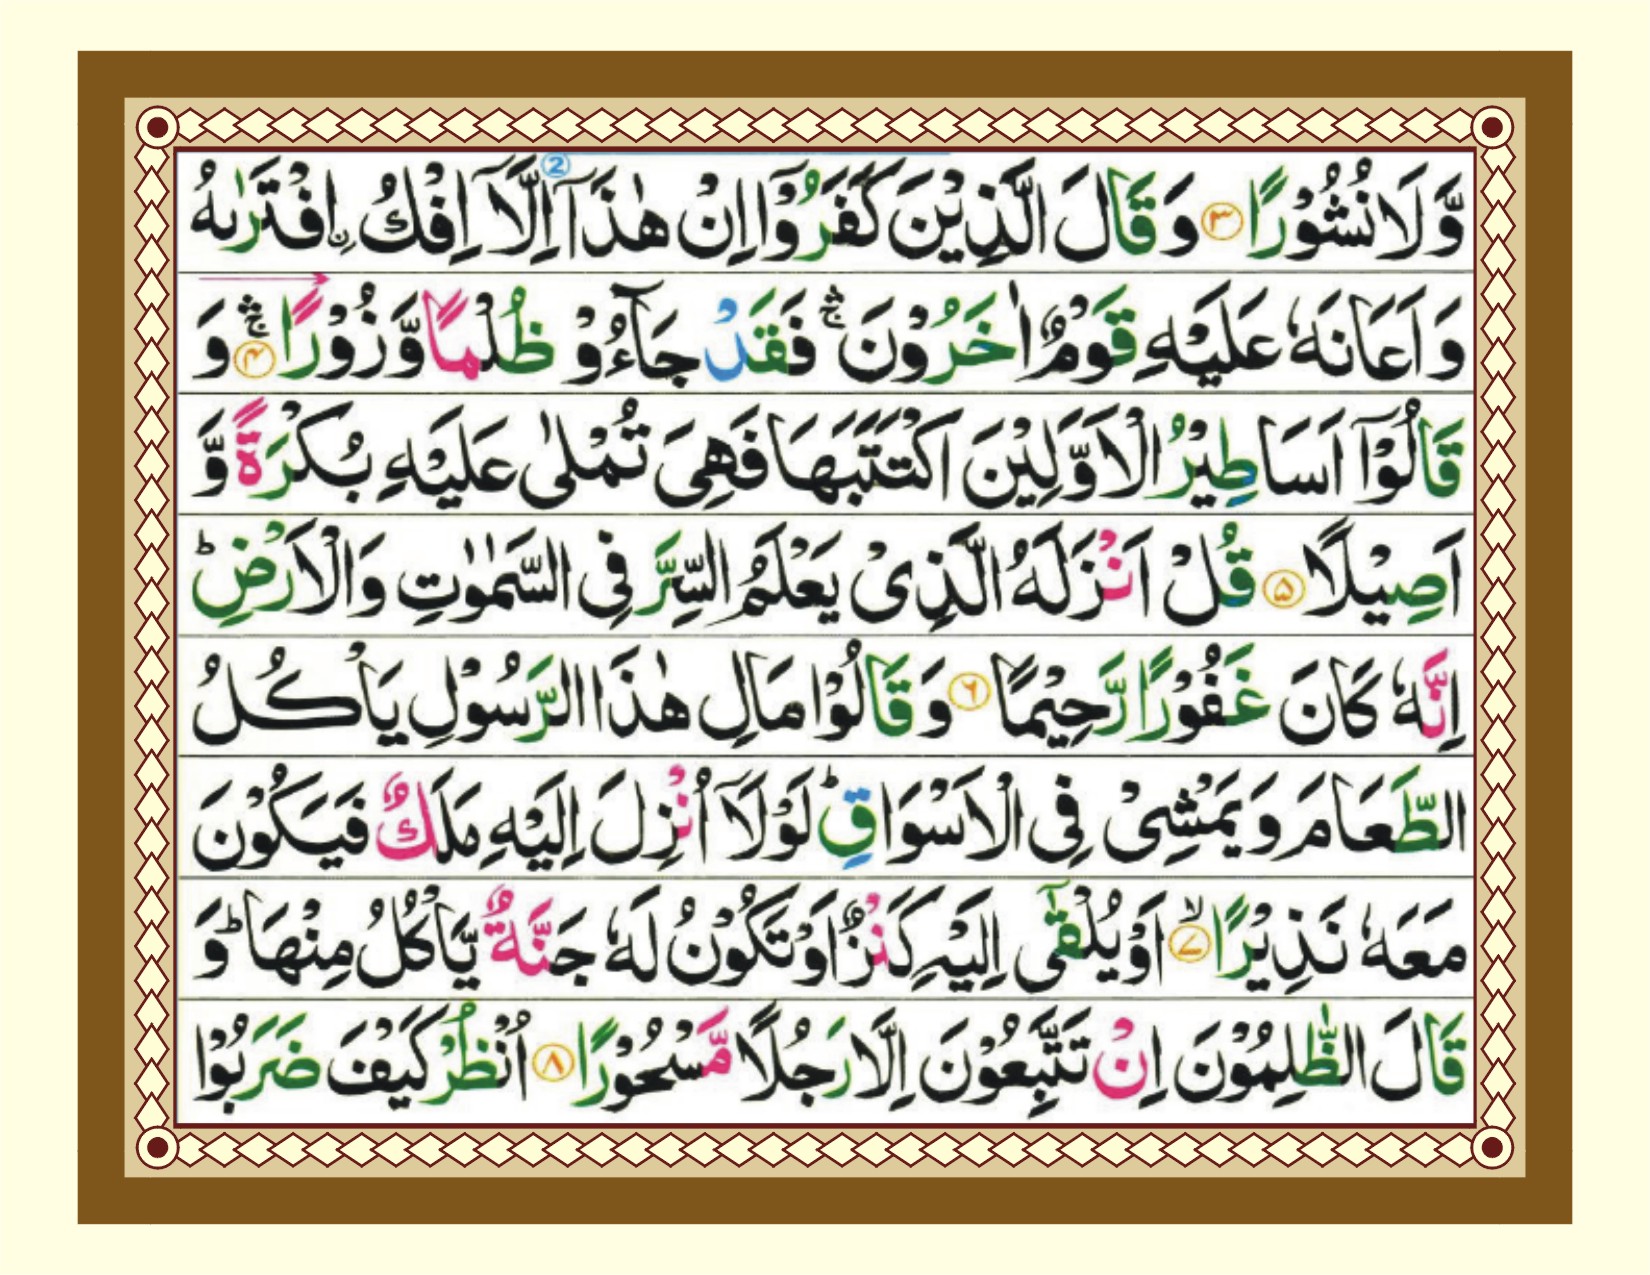 وَّلَا نُشُوْرًا ﴿۳﴾ وَقَالَ الَّذِيْنَ كَفَرُوْۤا اِنْ هٰذَاۤ اِلَّاۤ ② اِفْكُ ِۨافْتَرٰىهُ
وَاَعَانَهٗ عَلَيْهِ قَوْمٌ اٰخَرُوْنَ ۛۚ فَقَدْ جَآءُوْ ظُلْمًا وَّزُوْرًا ﴿۴﴾ ۛۚ وَ
قَالُوْۤا اَسَاطِيْرُ الْاَوَّلِيْنَ اكْتَتَبَهَا فَهِىَ تُمْلٰى عَلَيْهِ بُكْرَةً وَّ
اَصِيْلًا ﴿۵﴾ قُلْ اَنْزَلَهُ الَّذِىْ يَعْلَمُ السِّرَّ فِى السَّمٰوٰتِ وَالْاَرْضِ ؕ
اِنَّهٗ كَانَ غَفُوْرًا رَّحِيْمًا ﴿۶﴾ وَقَالُوْا مَالِ هٰذَا الرَّسُوْلِ يَاْكُلُ
الطَّعَامَ وَيَمْشِىْ فِى الْاَسْوَاقِ ؕ لَوْلَاۤ اُنْزِلَ اِلَيْهِ مَلَكٌ فَيَكُوْنَ
مَعَهٗ نَذِيْرًا ﴿۷﴾ ۙ اَوْ يُلْقٰٓى اِلَيْهِ كَنْزٌ اَوْ تَكُوْنُ لَهٗ جَنَّةٌ يَّاْكُلُ مِنْهَا ؕ وَ
قَالَ الظّٰلِمُوْنَ اِنْ تَتَّبِعُوْنَ اِلَّا رَجُلًا مَّسْحُوْرًا ﴿۸﴾ اُنْظُرْ كَيْفَ ضَرَبُوْا